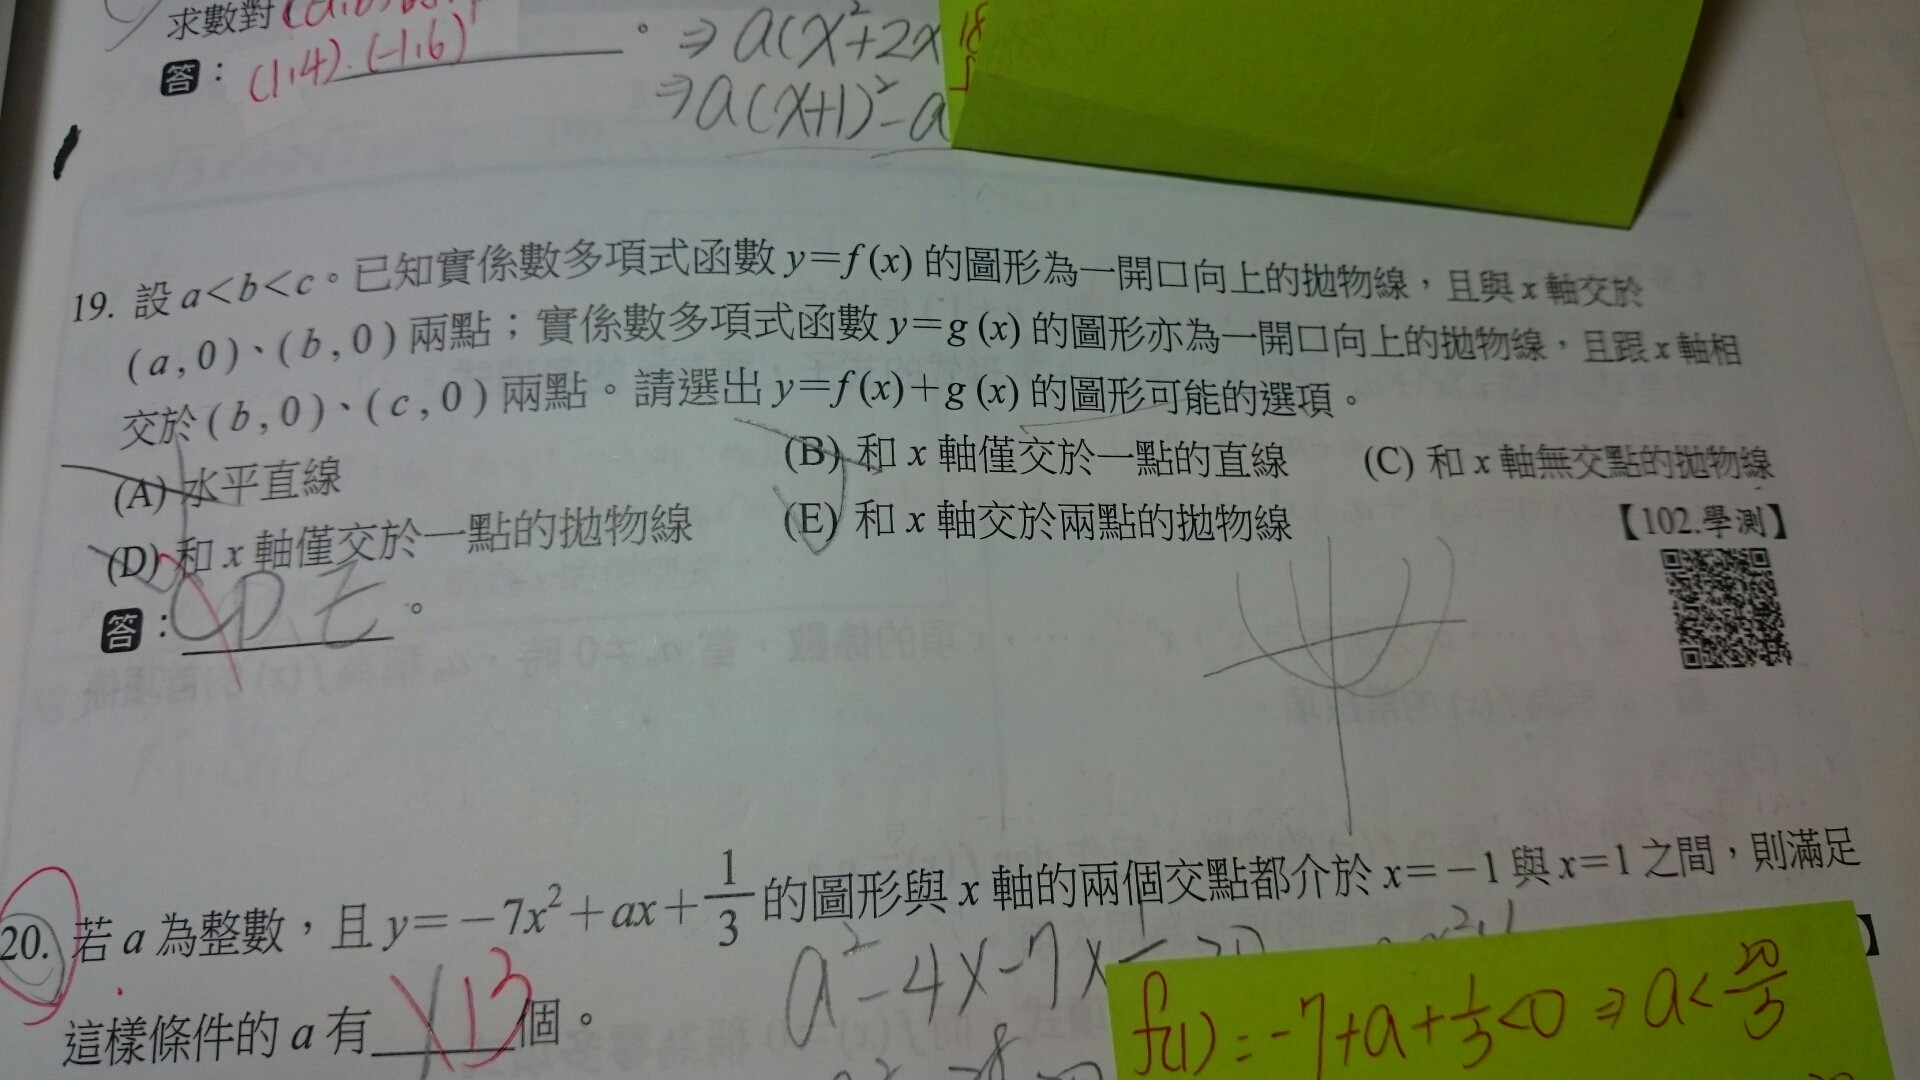 求數對
答：(1,4).(-1,6)。
⇒a(x²+2x
⇒a(x+1)²-a
18
19. 設 a<b<c。已知實係數多項式函數 y=f(x) 的圖形為一開口向上的拋物線，且與 x 軸交於
(a,0)、(b,0) 兩點；實係數多項式函數 y=g(x) 的圖形亦為一開口向上的拋物線，且跟 x 軸相
交於 (b,0)、(c,0) 兩點。請選出 y=f(x)+g(x) 的圖形可能的選項。
(A) 水平直線 (B) 和 x 軸僅交於一點的直線 (C) 和 x 軸無交點的拋物線
(D) 和 x 軸僅交於一點的拋物線 (E) 和 x 軸交於兩點的拋物線 【102.學測】
答：CDE。
20. 若 a 為整數，且 y=-7x²+ax+1/3 的圖形與 x 軸的兩個交點都介於 x=-1 與 x=1 之間，則滿足
這樣條件的 a 有 13 個。
a²-4x-7x
f(1)=-7+a+1/3<0⇒a<20/3